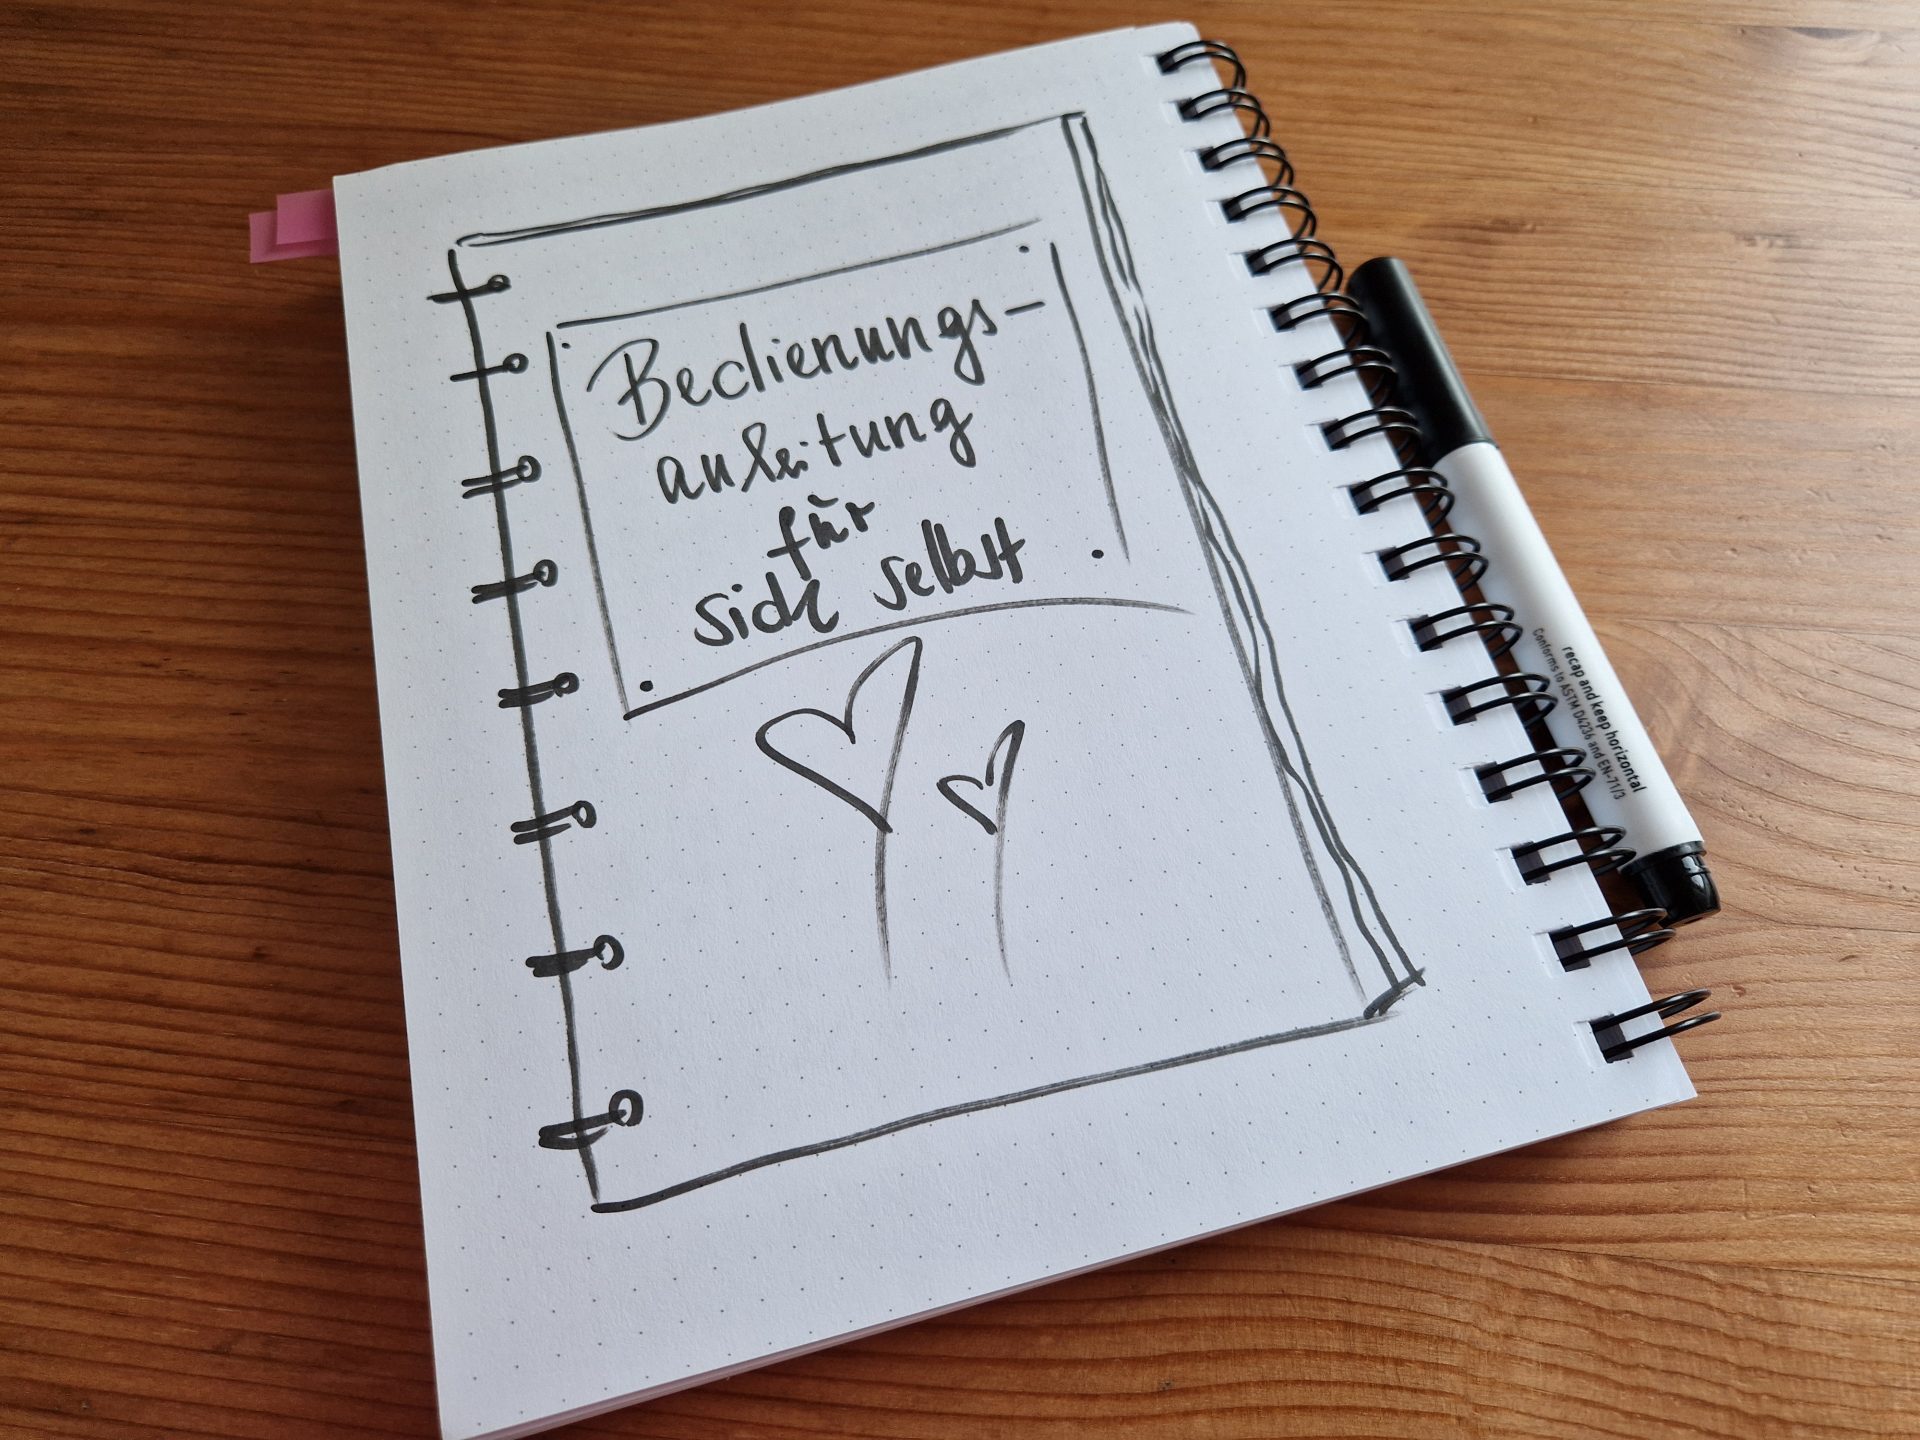 Bedienungs-
anleitung
für
sich selbst
recap and keep horizontal
Conforms to ASTM D4236 and EN-71/3